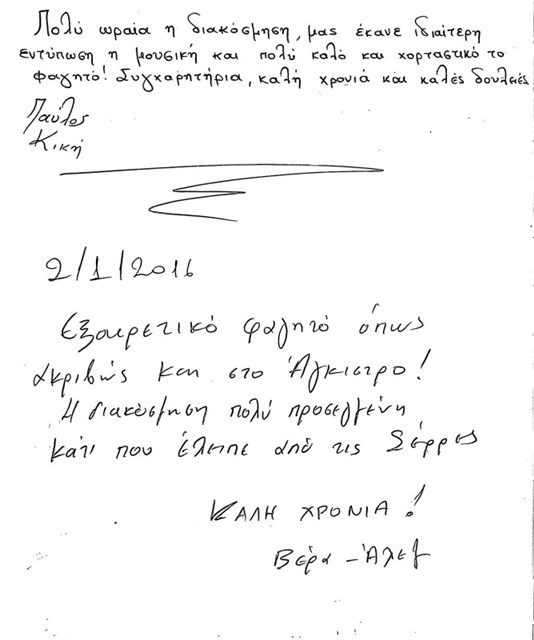 Πολύ ωραία η διακόσμηση, μας έκανε ιδιαίτερη
εντύπωση η μουσική και πολύ καλό και χορταστικό το
φαγητό! Συγχαρητήρια, καλή χρονιά και καλές δουλειές
Παύλος
Κική
2/1/2016
Εξαιρετικό φαγητό όπως
ακριβώς και στο Άγκιστρο!
Η διακόσμηση πολύ προσεγμένη
κάτι που έλειπε από τις Σέρρες
ΚΑΛΗ ΧΡΟΝΙΑ!
Βέρα - Άλεξ